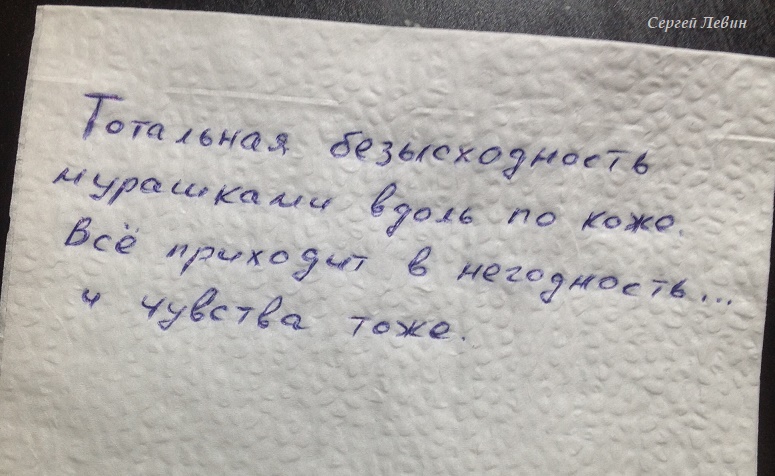 Сергей Левин
Тотальная безысходность
мурашками вдоль по коже.
Всё приходит в негодность...
и чувства тоже.